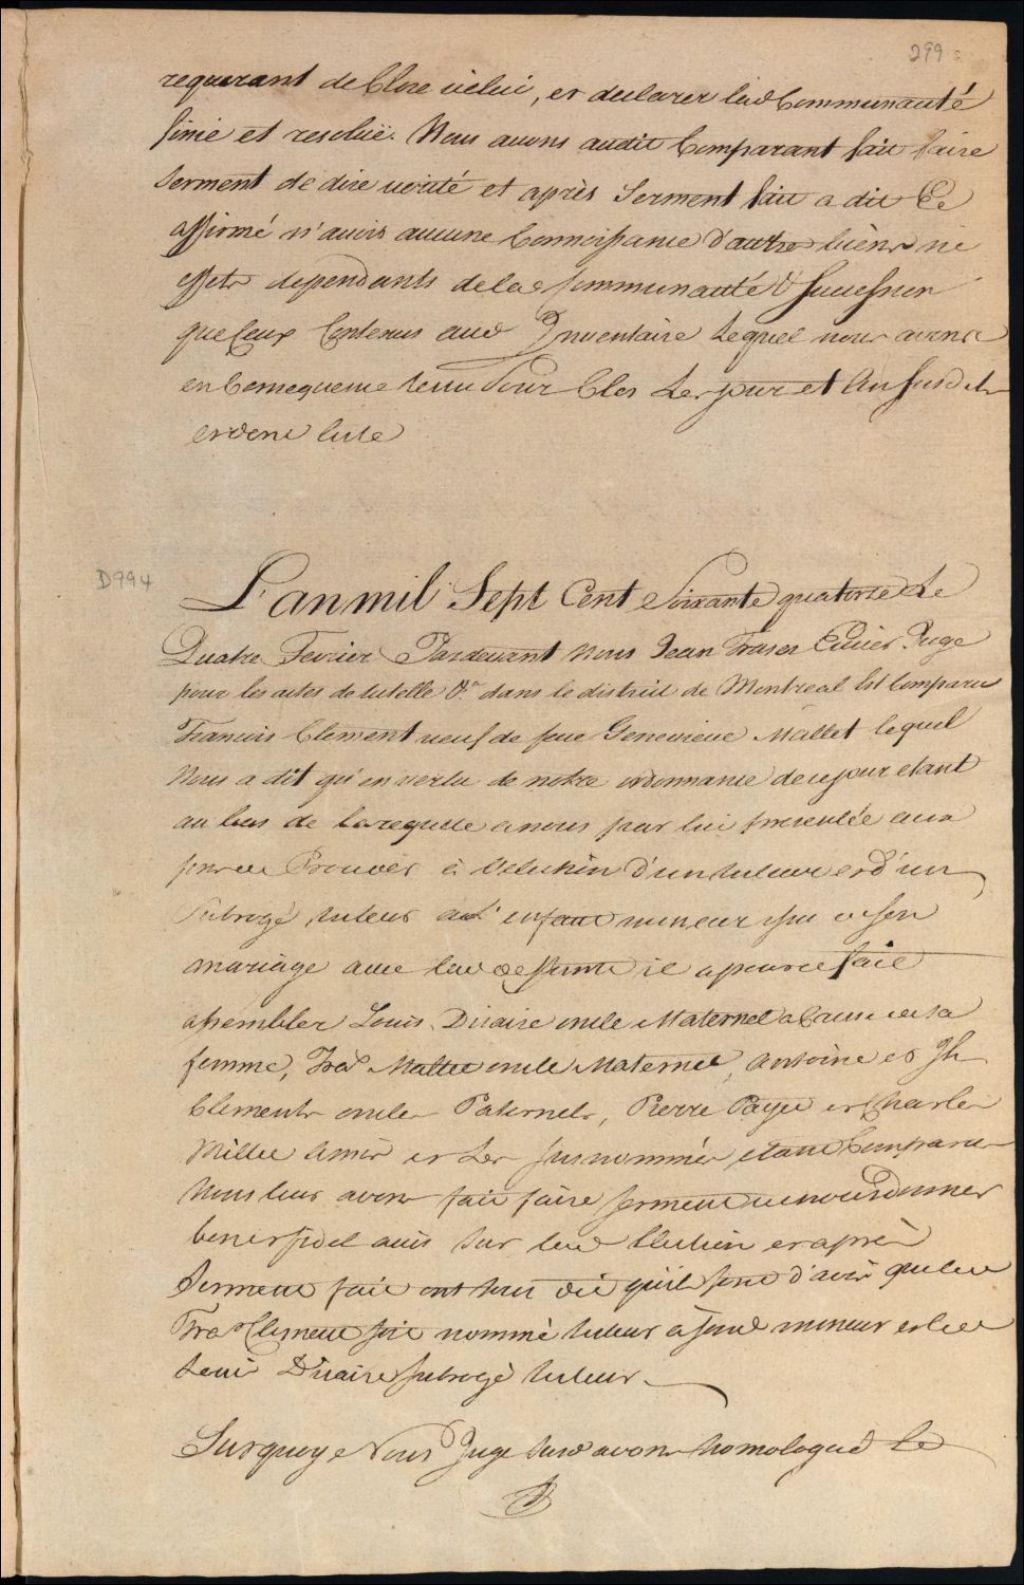 299
requerant de Clore icelui, et declarer lad Communauté
finie et resoluë. Nous avons audit Comparant fait faire
serment de dire verité et après Serment fait a dit Et
affirmé n'avoir aucune Connoissance d'autres biens ni
effets dependants de lad Communauté & Succession
que Ceux Contenus aud Inventaire Lequel nous avons
en Consequence tenu Pour Clos Les jour et An susdits
D994
L'an mil Sept Cent Soixante quatorze Le
Quatre Fevrier Pardevant Nous Jean Fraser Ecuier Juge
pour les actes de tutelle &ca dans le district de Montreal Est Comparu
Francois Clement veuf de feue Genevieve Mallet lequel
Nous a dit qu'en vertu de notre ordonnance de ce jour etant
au bas de la requete a nous par lui presentée aux
fins de Proceder à l'election d'un tuteur et d'un
Subrogé tuteur à l'enfant mineur issu de son
mariage avec lad defunte il a pour ce fait
assembler Louis Dicaire oncle Maternel a Cause de sa
femme, Fras Mallet oncle Maternel, Antoine et Jh
Clements oncles Paternels, Pierre Payet et Charles
Millet Amis et Les susnommés etant Comparus
Nous leur avons fait faire serment de nous donner
bon et fidel avis sur lad Election et après
Serment fait ont tous dit qu'ils sont d'avis que led
Fras Clement soit nommé tuteur a son d mineur et led
Louis Dicaire subrogé tuteur.
Surquoy Nous Juge susd avons homologué Le